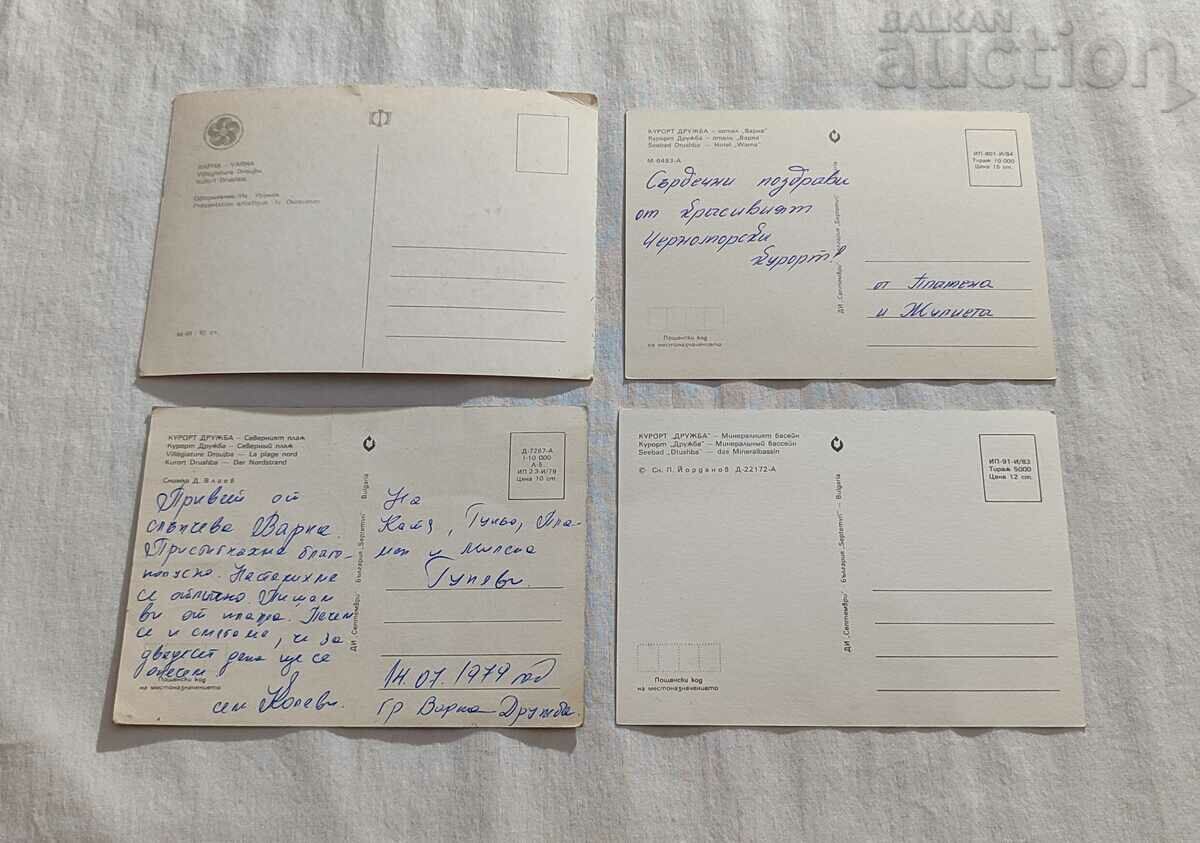 БАЛКАН
auction
ВАРНА – VARNA
Villégiature Droujba
Kurort Drushba
КУРОРТ ДРУЖБА – хотел „Варна"
Курорт Дружба – отель „Варна"
Seebad Drushba – Hotel „Warna"
М-6483-А
ИП-801-И/84
Тираж 10 000
Цена 15 ст.
Сърдечни поздрави
от красивият
Черноморски
курорт!
от Пламена
и Жулиета
ДИ „Септември" България „Septemvri" Bulgaria
Пощенски код
на местоназначението
КУРОРТ ДРУЖБА – Северният плаж
Курорт Дружба – Северный пляж
Villégiature Droujba – La plage nord
Kurort Drushba – Der Nordstrand
Снимка Д. Влаев
Д-7267-А
I-10 000
А-5
ИП 23-И/79
Цена 10 ст.
Привет от
слънчева Варна.
Пристигнахме благо-
получно. Настанихме
се отлично. Пишем
ви от плажа. Печем
се и смятаме, че за
двадесет дена ще се
опечем
сем. Колеви.
На
Катя, Гуньо, Пла-
мен и Милена
Гуневи.
14.07.1979 год
гр Варна Дружба.
ДИ „Септември" България „Septemvri" Bulgaria
Пощенски код
на местоназначението
КУРОРТ „ДРУЖБА" – Минералният басейн
Курорт „Дружба" – Минеральный бассейн
Seebad „Drushba" – das Mineralbassin
© Сн. П. Йорданов Д-22172-А
ИП-91-И/83
Тираж 5000
Цена 12 ст.
ДИ „Септември" България „Septemvri" Bulgaria
Пощенски код
на местоназначението